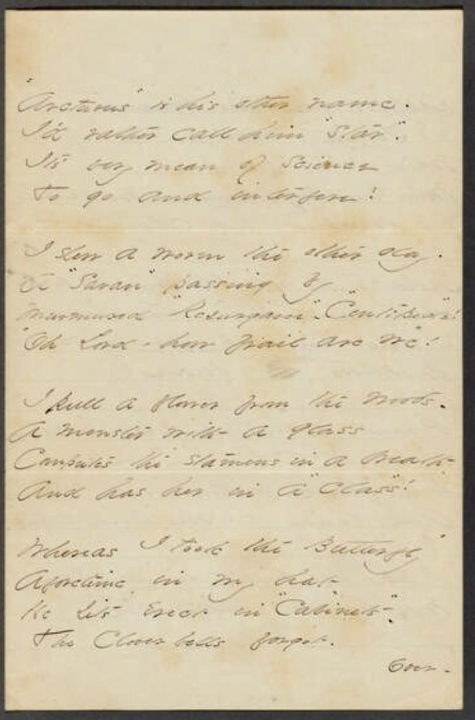 "Arcturus" is his other name.
I'd rather call him "Star".
It's very mean of Science
To go and interfere!
I slew a worm the other day.
A "Savan" passing by
Murmured "Resurgam". "Centipede"!
"Oh Lord - how frail are we"!
I pull a flower from the woods.
A monster with a glass
Computes the stamens in a breath -
And has her in a "Class"!
Whereas I took the Butterfly
Aforetime in my hat -
He sits erect in "Cabinets".
The Clover bells forgot.
Over -